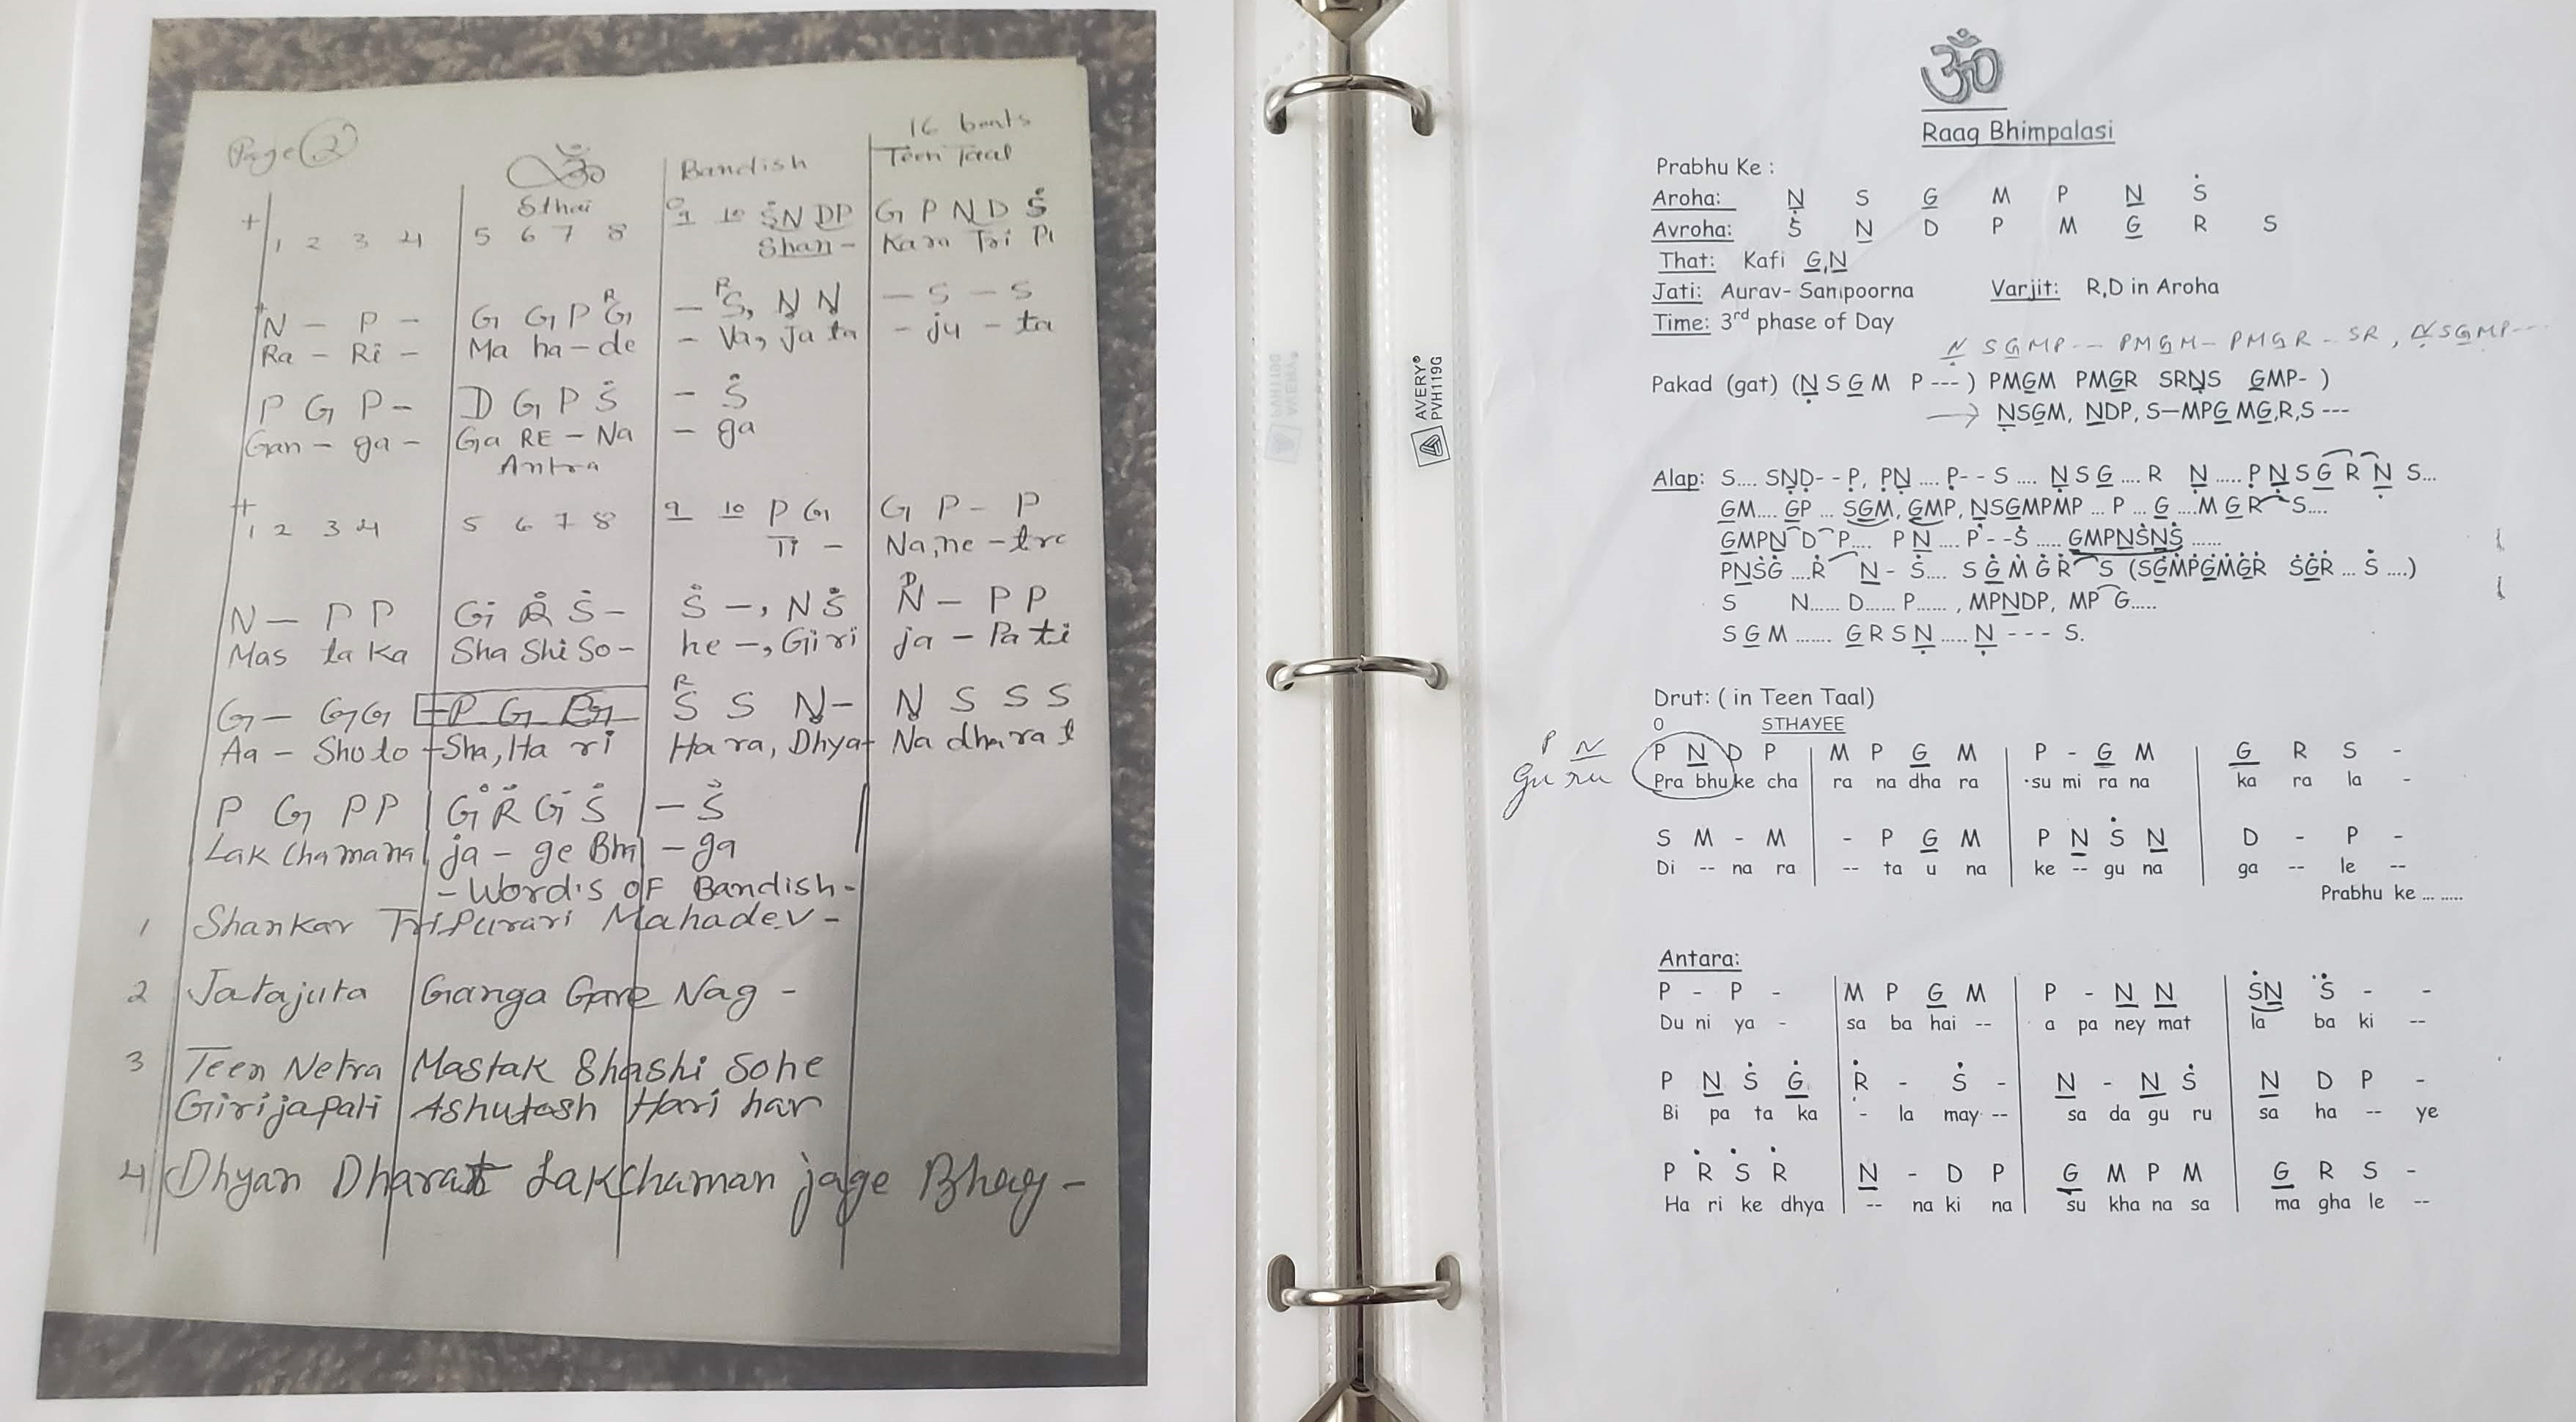 Page 2
16 beats
ॐ Bandish Teen Taal
Sthai
+ 1 2 3 4 5 6 7 8 0 9 10 ṠN DP G P N D Ṡ
Shan - Kara Tri Pu
+ N - P - G G P ᴿG - ᴿS, Ṇ Ṇ - S - S
Ra - Ri - Ma ha - de - Va, Ja ta - ju - ta
P G P - D G P Ṡ - Ṡ
Gan - ga - Ga RE - Na - ga
Antra
+ 1 2 3 4 5 6 7 8 9 10 P G G P - P
Ti - Na, ne - tra
N - P P Ġ Ṙ Ṡ - Ṡ -, N Ṡ ᴰN - P P
Mas ta Ka Sha Shi So - he -, Giri ja - Pa ti
G - G G - P G ᴿS S Ṇ - Ṇ S S S
Aa - Shu to - Sha, Ha ri Ha ra, Dhya - Na dhara t
P G P P Ġ Ṙ Ġ Ṡ - Ṡ
Lak Chamana ja - ge Bha - ga
- Word's OF Bandish -
1 Shankar TriPurari Mahadev -
2 Jatajuta Ganga Gare Nag -
3 Teen Netra Mastak Shashi Sohe
Girijapati Ashutosh Hari har
4 Dhyan Dharat Lakchaman jage Bhag -
AVERY®
PVH119G
ॐ
Raag Bhimpalasi
Prabhu Ke :
Aroha: Ṇ̲ S G̲ M P N̲ Ṡ
Avroha: Ṡ N̲ D P M G̲ R S
That: Kafi G̲,N̲
Jati: Aurav- Sampoorna Varjit: R,D in Aroha
Time: 3rd phase of Day
Ṇ̲ S G̲ M P -- P M G̲ M - P M G̲ R - S R , Ṇ̲ S G̲ M P ---
Pakad (gat) (Ṇ̲ S G̲ M P --- ) PMG̲M PMG̲R SRṆ̲S G̲MP- )
→ Ṇ̲SG̲M, N̲DP, S—MPG̲ MG̲,R,S ---
Alap: S.... SṆ̲Ḍ- -Ṗ, P̣Ṇ̲ .... P̣- - S .... Ṇ̲ S G̲ .... R Ṇ̲ ..... P̣ Ṇ̲ S G̲ R Ṇ̲ S...
G̲M.... G̲P ... SG̲M, G̲MP, Ṇ̲SG̲MPMP ... P ... G̲ ....M G̲ R S....
G̲MPN̲ D P.... P N̲ .... P - -Ṡ ..... G̲MPN̲ṠN̲Ṡ ......
PN̲ṠĠ̲ ....Ṙ N̲ - Ṡ.... S Ġ̲ Ṁ Ġ̲ Ṙ S (SĠ̲ṀṖĠ̲ṀĠ̲Ṙ ṠĠ̲Ṙ ... Ṡ ....)
S N...... D...... P...... , MPN̲DP, MP G.....
S G̲ M ....... G̲ R S Ṇ̲ ..... Ṇ̲ - - - S.
Drut: ( in Teen Taal)
0 STHAYEE
P N̲ P N̲ D P M P G̲ M P - G̲ M G̲ R S -
gu ru Pra bhu ke cha ra na dha ra su mi ra na ka ra la -
S M - M - P G̲ M P N̲ Ṡ N̲ D - P -
Di -- na ra -- ta u na ke -- gu na ga -- le --
Prabhu ke ... .....
Antara:
P - P - M P G̲ M P - N̲ N̲ ṠN̲ Ṡ - -
Du ni ya - sa ba hai -- a pa ney mat la ba ki --
P N̲ Ṡ Ġ̲ Ṙ - Ṡ - N̲ - N̲ Ṡ N̲ D P -
Bi pa ta ka - la may -- sa da gu ru sa ha -- ye
P Ṙ Ṡ Ṙ N̲ - D P G̲ M P M G̲ R S -
Ha ri ke dhya -- na ki na su kha na sa ma gha le --